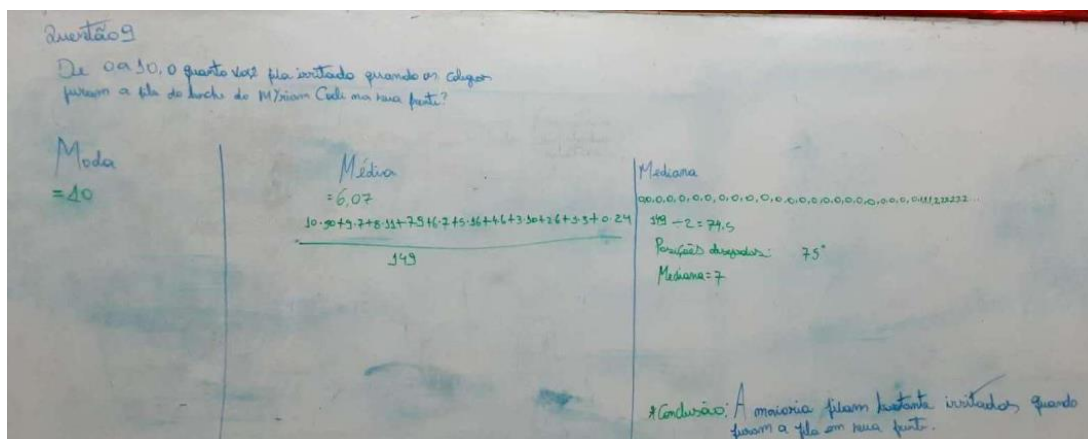 Questão 9
De 0 a 10, o quanto você fica irritado quando os colegas
furam a fila do lanche do Myriam Coeli na sua frente?
Moda
=10
Média
=6,07
10·50+9·7+8·11+7·9+6·7+5·16+4·6+3·10+2·6+1·3+0·24
149
Mediana
0,0,0,0,0,0,0,0,0,0,0,0,0,0,0,0,0,0,0,0,0,0,0,0,1,1,1,2,2,2,2,2,2...
149 ÷ 2 = 74,5
Posições desejadas: 75°
Mediana=7
*Conclusão: A maioria ficam bastante irritados quando
furam a fila em sua frente.